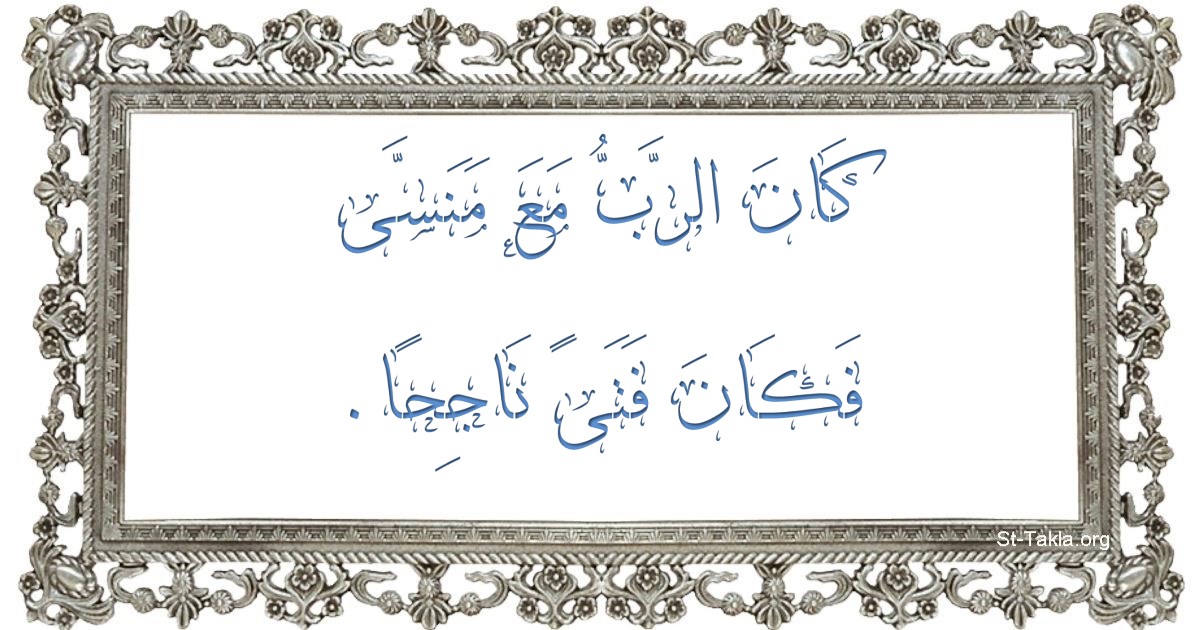 كَانَ الرَّبُّ مَعَ مَنَسَّى
فَكَانَ فَتَىً نَاجِحًا .
St-Takla.org